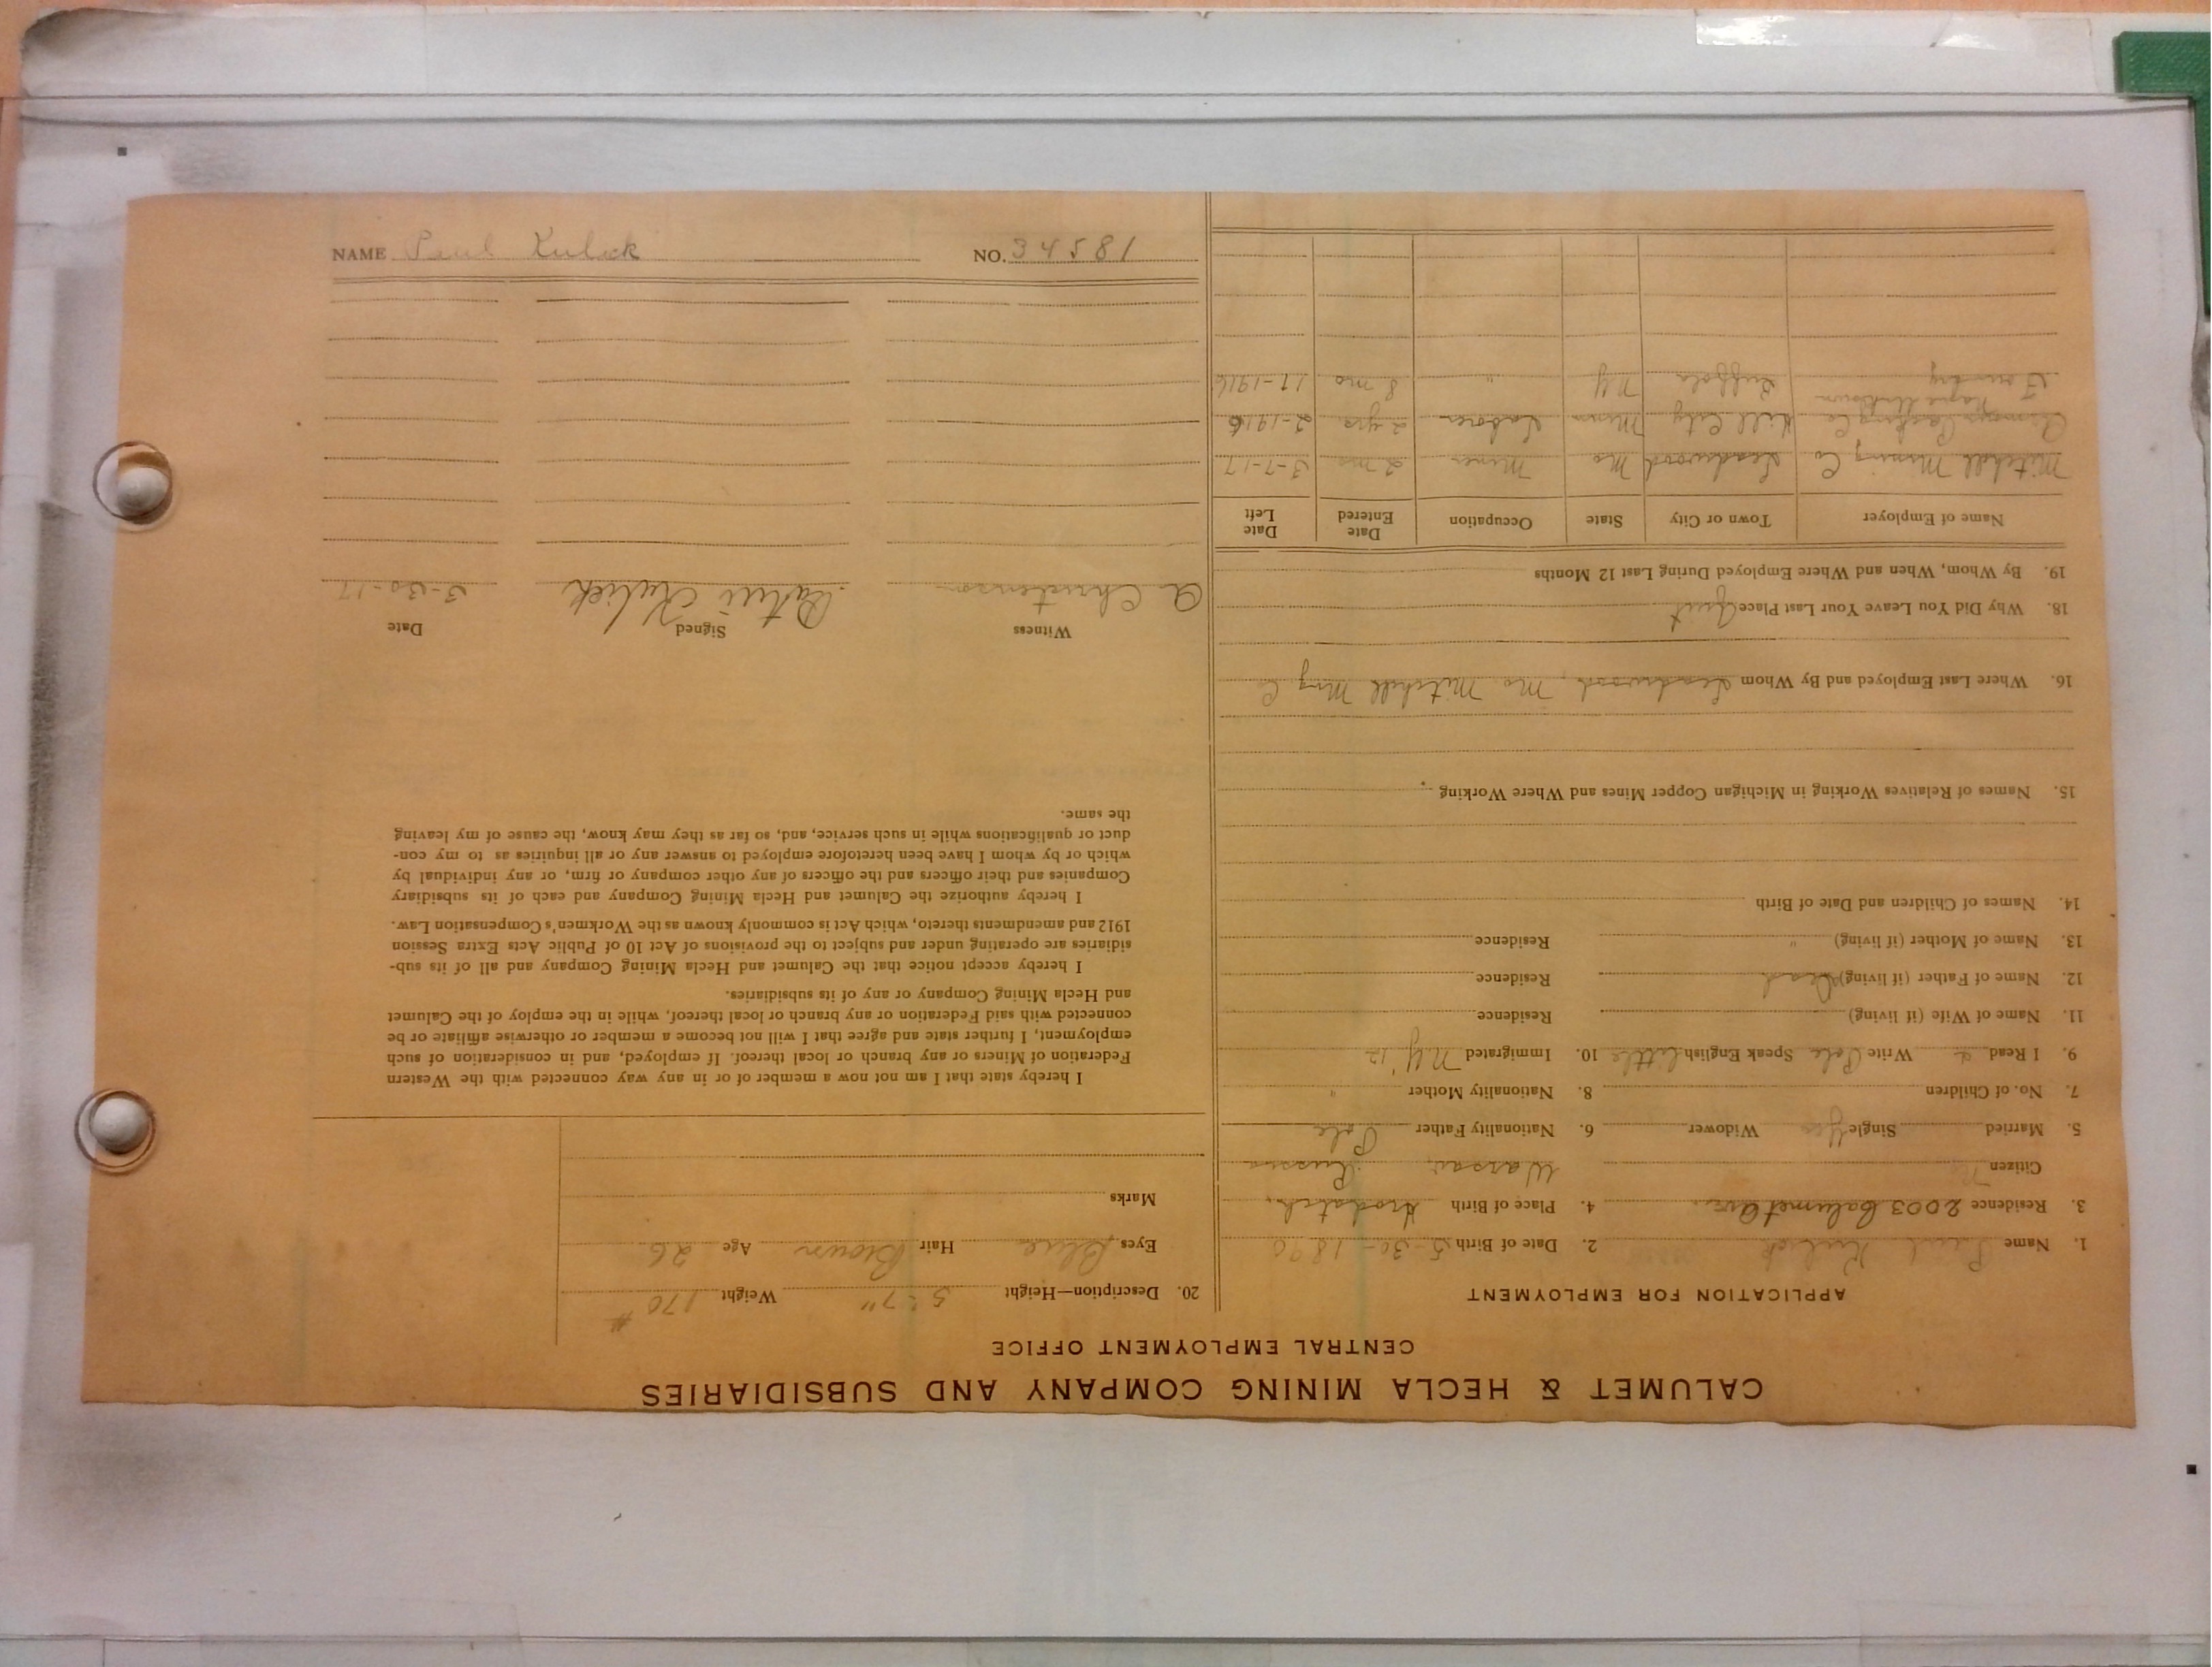 CALUMET & HECLA MINING COMPANY AND SUBSIDIARIES
CENTRAL EMPLOYMENT OFFICE
APPLICATION FOR EMPLOYMENT
1. Name Paul Kulick 2. Date of Birth 5-30-1890
3. Residence 2003 Calumet Ave. 4. Place of Birth
Citizen No Warsaw, Russia
5. Married Single Yes Widower 6. Nationality Father Pole
7. No. of Children 8. Nationality Mother "
9. I Read & Write Pole Speak English Little 10. Immigrated N.Y. '12
11. Name of Wife (if living) Residence
12. Name of Father (if living) Dead Residence
13. Name of Mother (if living) " Residence
14. Names of Children and Date of Birth
15. Names of Relatives Working in Michigan Copper Mines and Where Working
16. Where Last Employed and By Whom Leadwood, Mo Mitchell Ming Co
18. Why Did You Leave Your Last Place Quit
19. By Whom, When and Where Employed During Last 12 Months
Name of Employer Town or City State Occupation Date Entered Date Left
Mitchell Mining Co Leadwood Mo Miner 2 mo 3-7-17
Packing Co Hill City Minn Laborer 2 yrs 2-1916
Name Unknown
Foundry Buffalo N.Y. " 8 mo 11-1916
20. Description—Height 5-7" Weight 170#
Eyes Blue Hair Brown Age 26
Marks
I hereby state that I am not now a member of or in any way connected with the Western
Federation of Miners or any branch or local thereof. If employed, and in consideration of such
employment, I further state and agree that I will not become a member or otherwise affiliate or be
connected with said Federation or any branch or local thereof, while in the employ of the Calumet
and Hecla Mining Company or any of its subsidiaries.
I hereby accept notice that the Calumet and Hecla Mining Company and all of its sub-
sidiaries are operating under and subject to the provisions of Act 10 of Public Acts Extra Session
1912 and amendments thereto, which Act is commonly known as the Workmen's Compensation Law.
I hereby authorize the Calumet and Hecla Mining Company and each of its subsidiary
Companies and their officers and the officers of any other company or firm, or any individual by
which or by whom I have been heretofore employed to answer any or all inquiries as to my con-
duct or qualifications while in such service, and, so far as they may know, the cause of my leaving
the same.
Witness Signed Date
A Christenson Kulick 3-30-17
NAME Paul Kulick NO. 34581